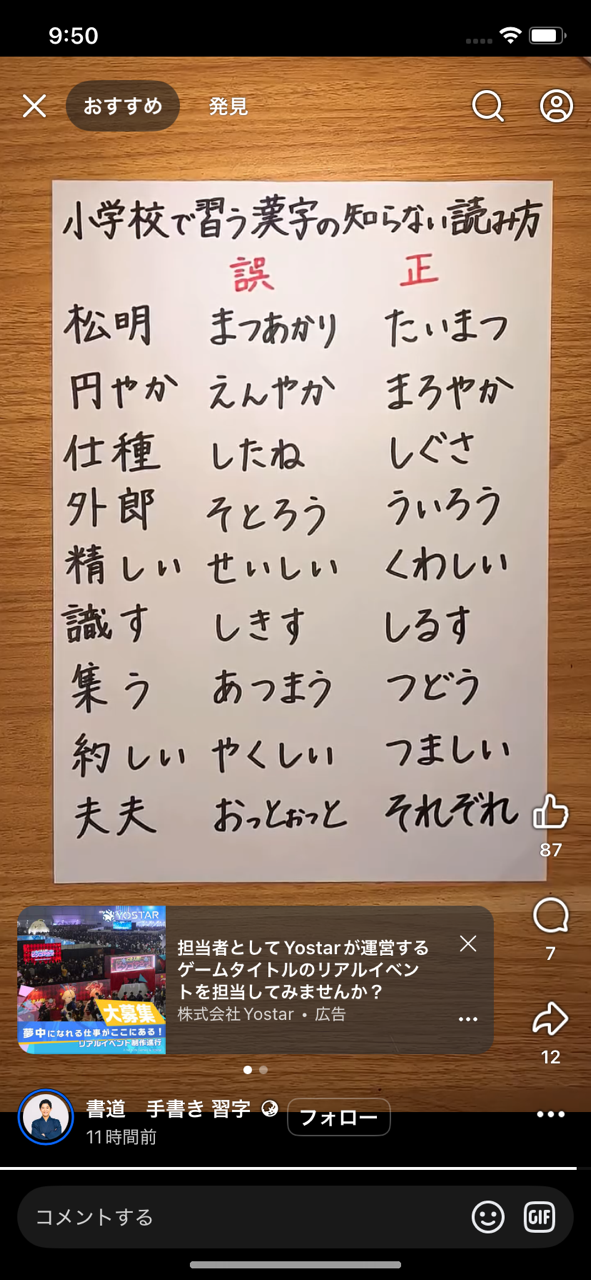 9:50
おすすめ 発見
小学校で習う漢字の知らない読み方
誤 正
松明 まつあかり たいまつ
円やか えんやか まろやか
仕種 したね しぐさ
外郎 そとろう ういろう
精しい せいしい くわしい
識す しきす しるす
集う あつまう つどう
約しい やくしい つましい
夫夫 おっとおっと それぞれ
87
7
12
YOSTAR
大募集
夢中になれる仕事がここにある!
リアルイベント制作進行
担当者としてYostarが運営する
ゲームタイトルのリアルイベン
トを担当してみませんか?
株式会社Yostar・広告
書道 手書き 習字
フォロー
11時間前
コメントする
GIF